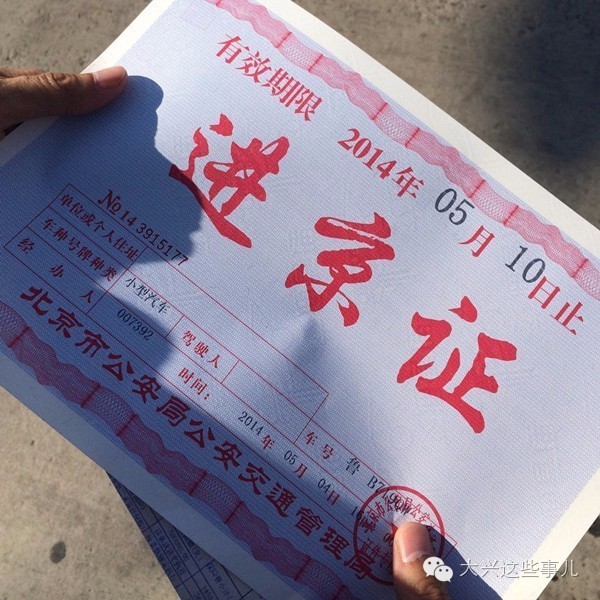 有效期限 2014年05月10日止
进京证
№ 143915177
单位或个人住址
车种号牌种类 小型汽车 驾驶人
经办人 007392 车号 鲁
时间: 2014年 05月 04日
北京市公安局公安交通管理局
大兴这些事儿